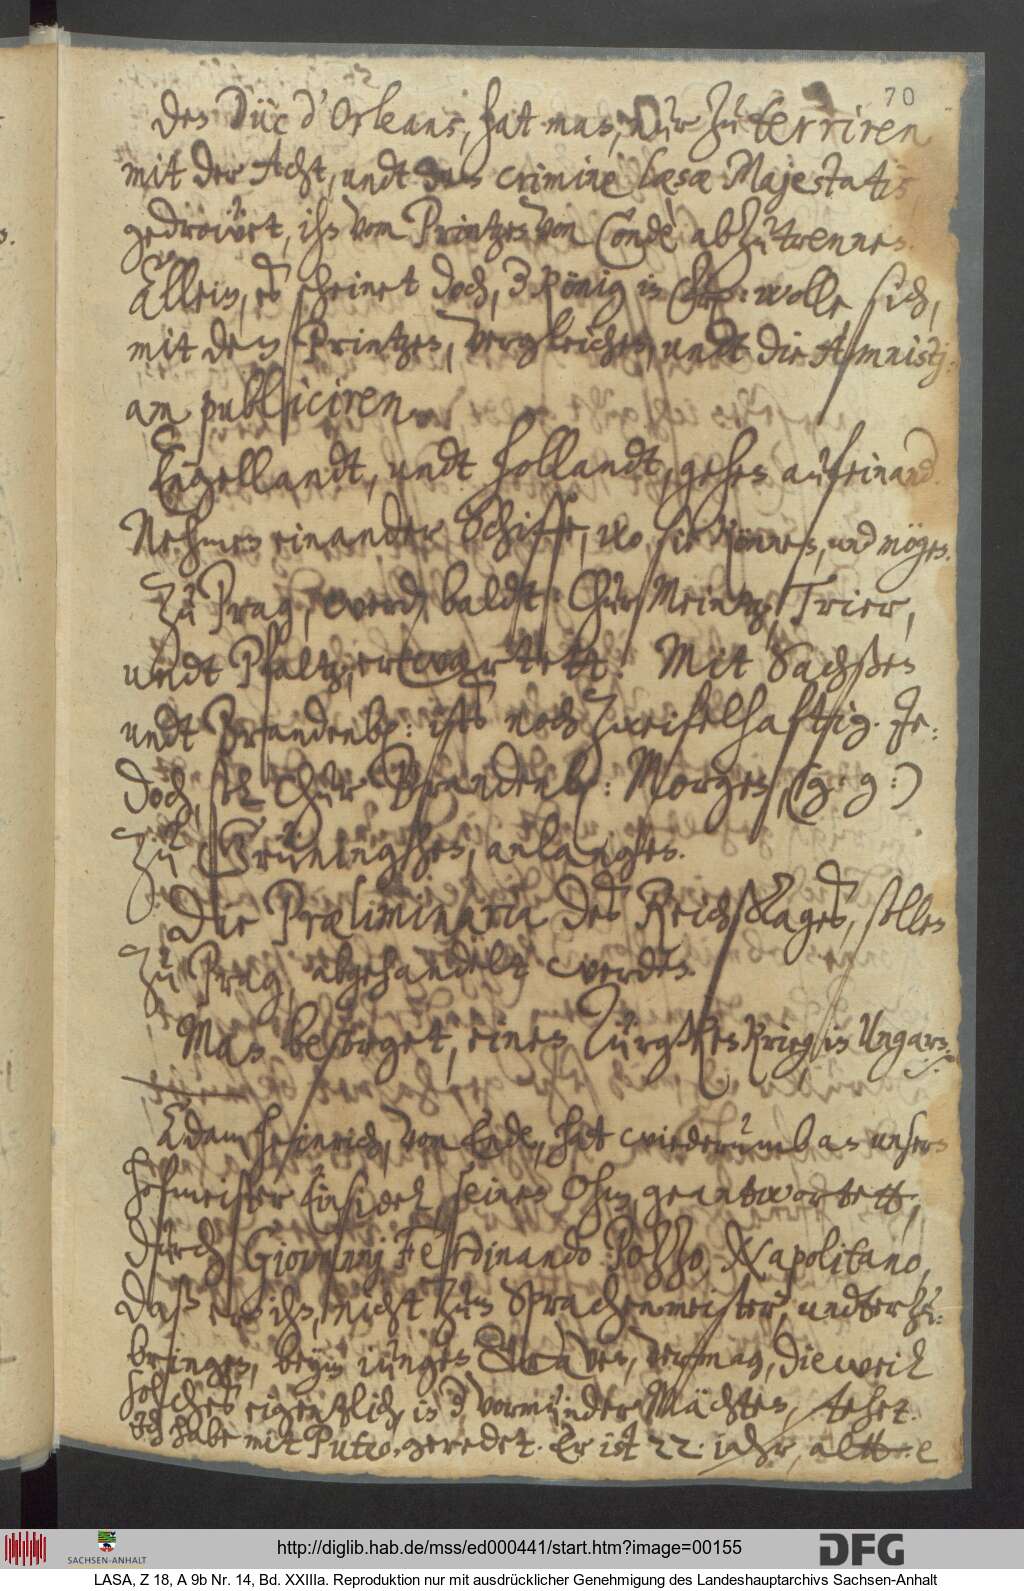 70
Den Düc d'Orleans, hat man, nur zu terriren
mit der Acht, undt dem crimine læsæ Majestatis
gedrowet, ihn vom Printzen von Condè abzutrennen.
Allein, es scheinet doch, der König in : wolle sich,
mit dem Printzen, vergleichen, undt die Amnistj:
am publiciren.
Engellandt, undt Hollandt, gehen aufeinand.
Nehmen einander Schiffe, wo sie können, und mögen.
Zu Prag, werden baldt: Chur Meintz, Trier,
undt Pfaltz, erwartett. Mit Sachßen
undt Brandenb: ists noch zweifelhaftig. Je:
doch, soll Chur Brandenb: Morgen, (g: g:)
zu Grüninghen, anlangen.
Die Præliminaria des ReichsTages, sollen
zu Prag, abgehandelt werden.
Man besorget, einen TürgkenKrieg in Ungarn.
Adam Heinrich, von Ende, hat wiederumb an unsern
hofmeister Einsidel, seinen Ohm, geantwortett,
durch Giovannj Ferdjnando Pozzo, Napolitano,
daß er ihn, nicht zum Sprachenmeister, undterzu:
bringen, beym iungen Graven, vermag, dieweil
solches eigentlich, in der Vormünder Mächten, stehet.
Ich habe mit Putzo, geredet. Er ist 22. iahr, altt.
http://diglib.hab.de/mss/ed000441/start.htm?image=00155
SACHSEN-ANHALT
DFG
LASA, Z 18, A 9b Nr. 14, Bd. XXIIIa. Reproduktion nur mit ausdrücklicher Genehmigung des Landeshauptarchivs Sachsen-Anhalt